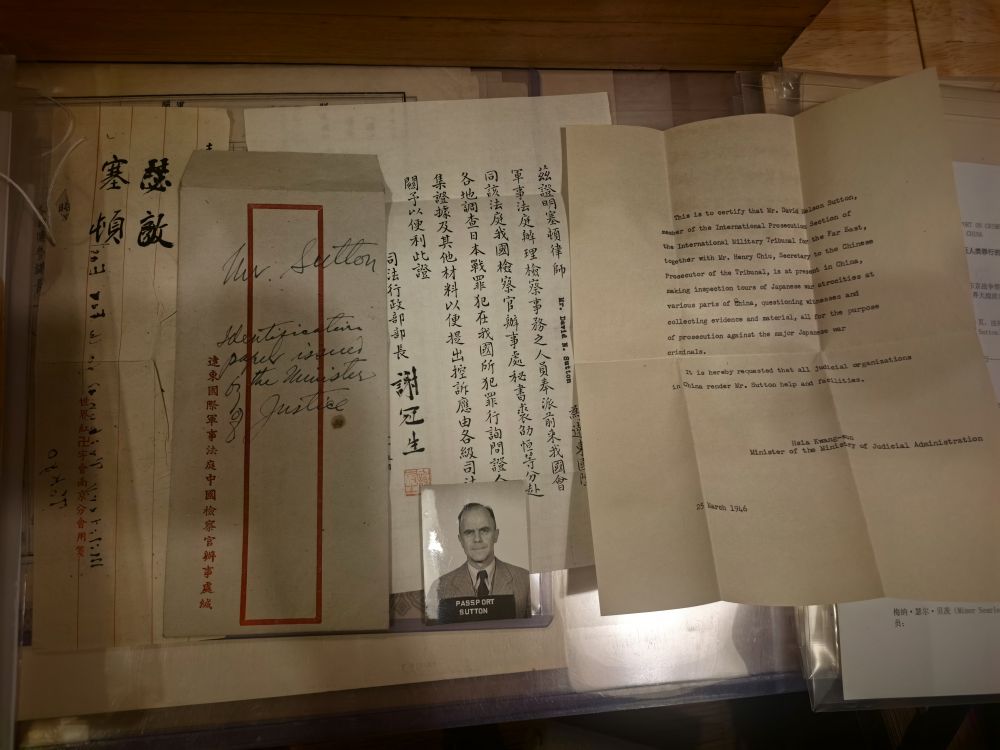 瑟敵
塞頓
世界紅卍字會南京分會用箋
Mr. Sutton
Identification
paper issued
by the Minister
of Justice
遠東國際軍事法庭中國檢察官辦事處緘
茲證明塞頓律師
Mr. David N. Sutton
軍事法庭辦理檢察事務之人員奉派前來我國會
同該法庭我國檢察官辦事處秘書裘劭恒等分赴
各地調查日本戰罪犯在我國所犯罪行詢問證人
集證據及其他材料以便提出控訴應由各級司法
關予以便利此證
司法行政部部長 謝冠生
PASSPORT
SUTTON
This is to certify that Mr. David Nelson Sutton,
member of the International Prosecution Section of
the International Military Tribunal for the Far East,
together with Mr. Henry Chiu, Secretary to the Chinese
Prosecutor of the Tribunal, is at present in China,
making inspection tours of Japanese war atrocities at
various parts of China, questioning witnesses and
collecting evidence and material, all for the purpose
of prosecution against the major Japanese war
criminals.
It is hereby requested that all judicial organizations
in China render Mr. Sutton help and facilities.
Hsia Kwang-sun
Minister of the Ministry of Judicial Administration
25 March 1946